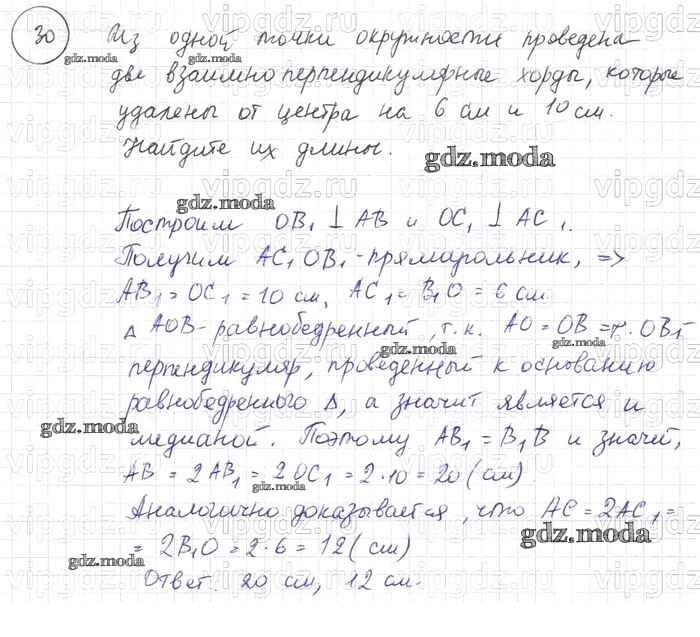 30 Из одной точки окружности проведена
две взаимно перпендикулярные хорды, которые
удалены от центра на 6 см и 10 см.
Найдите их длины.
Построим OB₁ ⊥ AB и OC₁ ⊥ AC₁.
Получим AC₁OB₁-прямоугольник, =>
AB₁ = OC₁ = 10 см, AC₁ = B₁O = 6 см
Δ AOB-равнобедренный, т.к. AO = OB = r. OB₁-
перпендикуляр, проведенный к основанию
равнобедренного Δ, а значит является и
медианой. Поэтому AB₁ = B₁B и значит,
AB = 2AB₁ = 2OC₁ = 2·10 = 20 (см)
Аналогично доказывается, что AC = 2AC₁ =
= 2B₁O = 2·6 = 12 (см)
Ответ. 20 см, 12 см.
gdz.moda
gdz.moda
gdz.moda
gdz.moda
gdz.moda
gdz.moda
gdz.moda
gdz.moda
gdz.moda
gdz.moda
vipgdz.ru